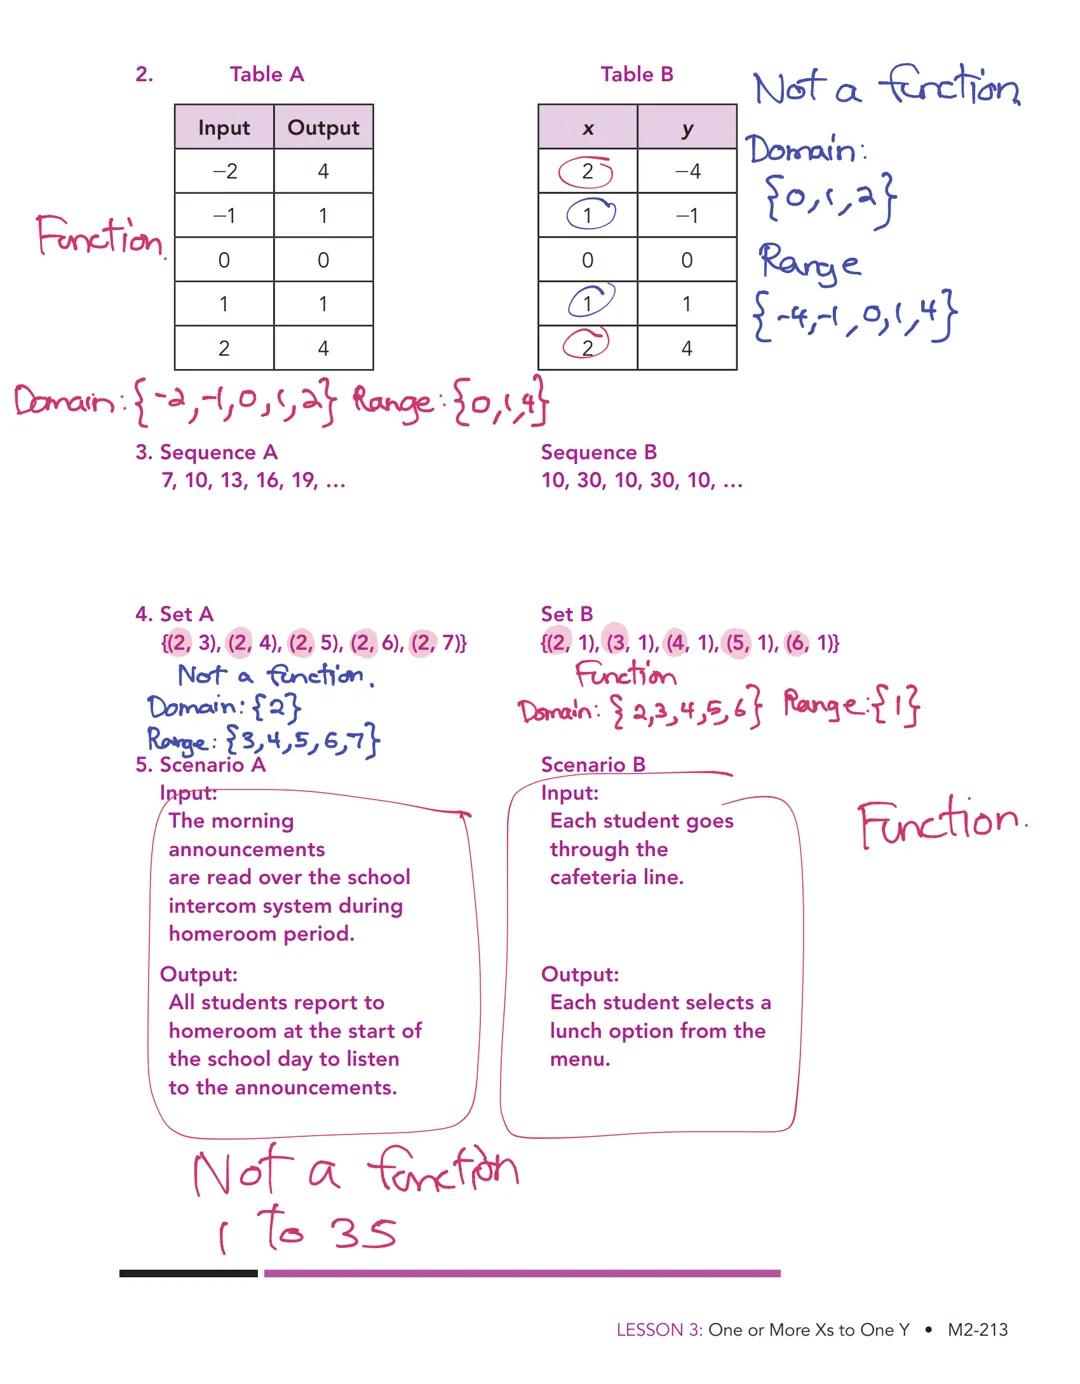 2.
Table A
Input Output
−2 4
−1 1
0 0
1 1
2 4
Function.
Domain: {-2,-1,0,1,2} Range: {0,1,4}
Table B
x y
2 −4
1 −1
0 0
1 1
2 4
Not a function
Domain:
{0,1,2}
Range
{-4,-1,0,1,4}
3. Sequence A
7, 10, 13, 16, 19, …
Sequence B
10, 30, 10, 30, 10, …
4. Set A
{(2, 3), (2, 4), (2, 5), (2, 6), (2, 7)}
Not a function.
Domain: {2}
Range: {3,4,5,6,7}
Set B
{(2, 1), (3, 1), (4, 1), (5, 1), (6, 1)}
Function
Domain: {2,3,4,5,6} Range: {1}
5. Scenario A
Input:
The morning
announcements
are read over the school
intercom system during
homeroom period.
Output:
All students report to
homeroom at the start of
the school day to listen
to the announcements.
Not a function
1 to 35
Scenario B
Input:
Each student goes
through the
cafeteria line.
Output:
Each student selects a
lunch option from the
menu.
Function.
LESSON 3: One or More Xs to One Y • M2-213